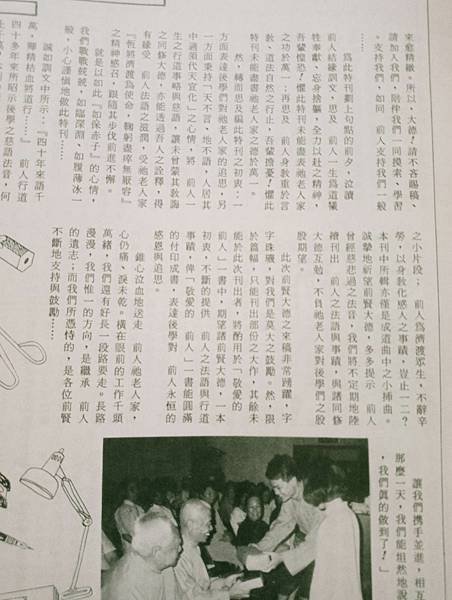 來愈精緻。所以，大德們，請不吝賜稿、
請加入我們，陪伴我們一同摸索、學習
。支持我們，如同 前人支持我們一般
。
為此特刊劃上句點的前夕，泣讀
前人結緣訓文，思及 前人一生為道犧
牲奉獻、忘身捨軀、全力以赴之精神，
吾輩惶恐！懼此特刊未能盡表祂老人家
之功於萬一；再思及 前人身教重於言
教、道法自然之行止，吾輩擔憂！懼此
特刊未能盡書祂老人家之德於萬一。
然，轉而思及編此特刊之初衷，一
方面表達後學們對祂老人家的追思，另
一方面秉持「天不言、地不語，人居其
中過須代天宣化」之心情，將 前人一
生之行道事略與慈語，讓未曾蒙其教誨
之同修大德，亦能透過吾人之詮釋，得
有緣受 前人法語之滋潤，受祂老人家
『哲將濟渡為使命，鞠躬盡瘁無厭容』
之精神感召，跟隨其步伐前進不懈。
就是以如此『如保赤子』的心情，
我們戰戰兢兢，如臨深淵、如履薄冰一
般，小心謹慎地做此特刊……
誠如訓文中所示：『四十年來語千
萬，嘔精枯血將道行……』 前人行道
四十多年來所昭示後學之慈語法音，何
之小片段； 前人為濟渡眾生，不辭辛
勞，以身教化感人之事蹟，豈止一二？
本刊中所輯亦僅是成道曲中之小插曲。
誠摯地祈望前賢大德，多多提示 前人
曾經慈悲過之法音，我們將不定期地陸
續刊出 前人之法語與事蹟，與諸同修
大德互勉，不負祂老人家對後學們之殷
殷期望。
此次前賢大德之來稿非常踴躍，字
字珠璣，對我們是莫大之鼓勵。然，限
於篇幅，只能刊出部份之大作，其餘未
能於此次刊出者，將酌用於「敬愛的
前人」一書中，期望諸前賢大德，一本
初衷，不斷的提供 前人之法語與行道
事蹟，俾「敬愛的 前人」一書能圓滿
的付印成書，表達後學對 前人永恒的
感恩與追思。
錐心泣血地送走 前人祂老人家，
心仍痛、淚未乾。橫在眼前的工作千頭
萬緒，我們還有好長一段路要走。長路
漫漫，我們惟一的方向，是繼承 前人
的遺志，而我們所憑恃的，是各位前賢
不斷地支持與鼓勵……
讓我們攜手並進，相互
那麼一天，我們能坦然地說
，我們真的做到了！」